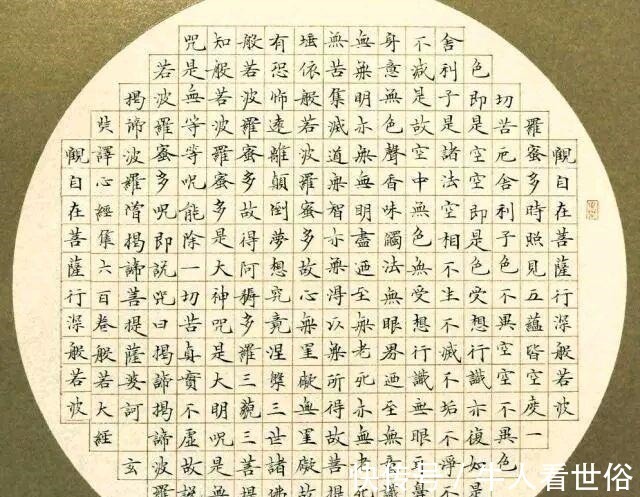 觀自在菩薩行深般若波
羅蜜多時照見五蘊皆空度一
切苦厄舍利子色不異空空不異色
色即是空空即是色受想行識亦復如是
舍利子是諸法空相不生不滅不垢不淨不
不減是故空中無色無受想行識無眼耳
身意無色聲香味觸法無眼界迺至無意
無無明亦無無明盡迺至無老死亦無老死
無苦集滅道無智亦無得以無所得故菩
埵依般若波羅蜜多故心無罣礙無罣礙故
有恐怖遠離顛倒夢想究竟涅槃三世諸佛
般若波羅蜜多故得阿耨多羅三藐三菩提
知般若波羅蜜多是大神咒是大明咒是
咒是無等等咒能除一切苦真實不虛故說
若波羅蜜多咒即說咒曰揭諦揭諦波羅
揭諦波羅僧揭諦菩提薩婆訶 玄
奘譯心經集六百卷般若大經
觀自在菩薩行深般若波
快传号/牛人看世俗